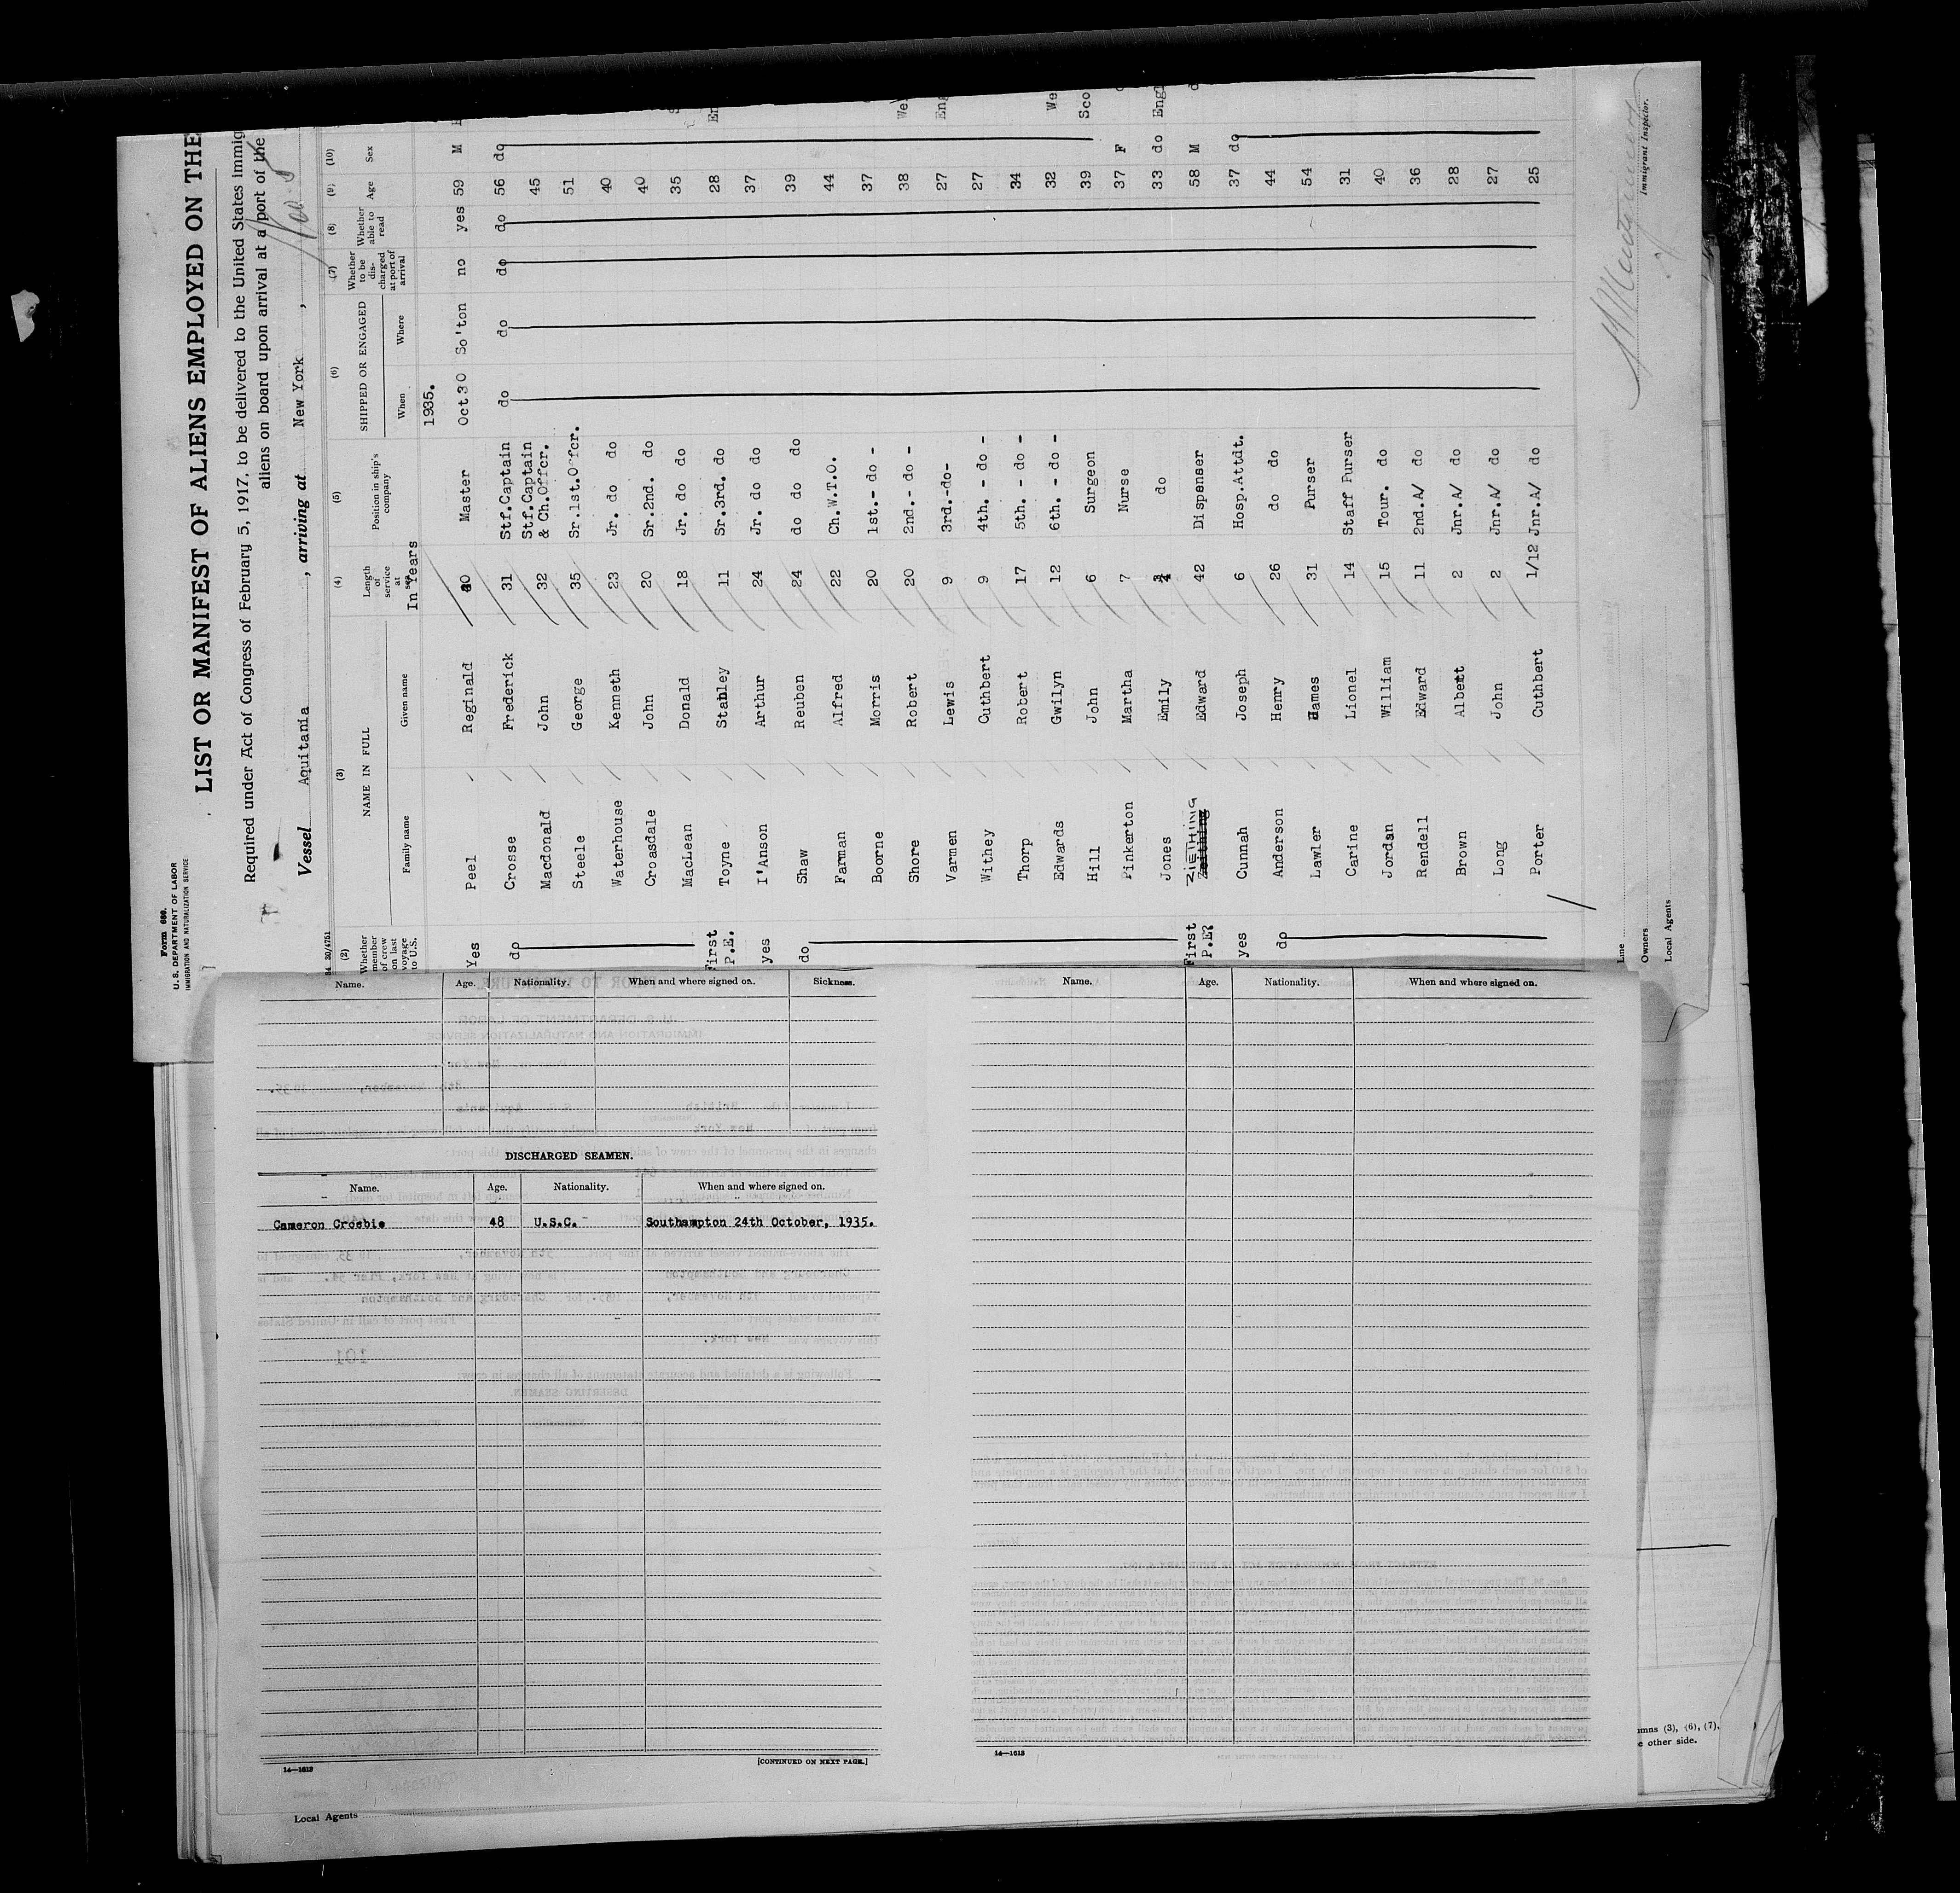 Form 680.
U. S. DEPARTMENT OF LABOR
IMMIGRATION AND NATURALIZATION SERVICE
LIST OR MANIFEST OF ALIENS EMPLOYED ON THE
Required under Act of Congress of February 5, 1917, to be delivered to the United States immig
aliens on board upon arrival at a port of the
Vessel Aquitania , arriving at New York ,
(2) (3) (4) (5) (6) (7) (8) (9) (10)
Whether member of crew on last voyage to U.S. NAME IN FULL Family name Given name Length of service at sea In Years Position in ship's company SHIPPED OR ENGAGED When Where Whether to be discharged at port of arrival Whether able to read Age Sex
1935.
Yes Peel Reginald Master Oct 30 So'ton no yes 59 M
do Crosse Frederick 31 Stf.Captain do do do do 56 do
Macdonald John 32 Stf.Captain & Ch.Offcr. 45
Steele George 35 Sr.1st.Offcr. 51
Waterhouse Kenneth 23 Jr. do do 40
Croasdale John 20 Sr.2nd. do 40
MacLean Donald 18 Jr. do do 35
First P.E. Toyne Stanley 11 Sr.3rd. do 28
yes I'Anson Arthur 24 Jr. do do 37
do Shaw Reuben 24 do do do 39
Farman Alfred 22 Ch.W.T.O. 44
Borne Morris 20 1st.- do - 37
Shore Robert 20 2nd.- do - 38
Varmen Lewis 9 3rd.-do- 27
Withey Cuthbert 9 4th. - do - 27
Thorp Robert 17 5th. - do - 34
Edwards Gwilyn 12 6th. - do - 32
Hill John 6 Surgeon 39
Pinkerton Martha 7 Nurse 37 F
Jones Emily do 33 do
First P.E? ZIETHING Edward 42 Dispenser 58 M
yes Cunnah Joseph 6 Hosp.Attdt. 37 do
do Anderson Henry 26 do do 44
Lawler James 31 Purser 54
Carine Lionel 14 Staff Purser 31
Jordan William 15 Tour. do 40
Rendell Edward 11 2nd.A/ do 36
Brown Albett 2 Jnr.A/ do 28
Long John 2 Jnr.A/ do 27
Porter Cuthbert 1/12 Jnr.A/ do 25
Immigrant Inspector.
Line
Owners
Local Agents
Name. Age. Nationality. When and where signed on. Sickness.
DISCHARGED SEAMEN.
Name. Age. Nationality. When and where signed on.
Cameron Crosbie 48 U.S.C. Southampton 24th October, 1935.
[CONTINUED ON NEXT PAGE.]
14—1613
Local Agents
Name. Age. Nationality. When and where signed on.
14—1613
umns (3), (6), (7),
e other side.